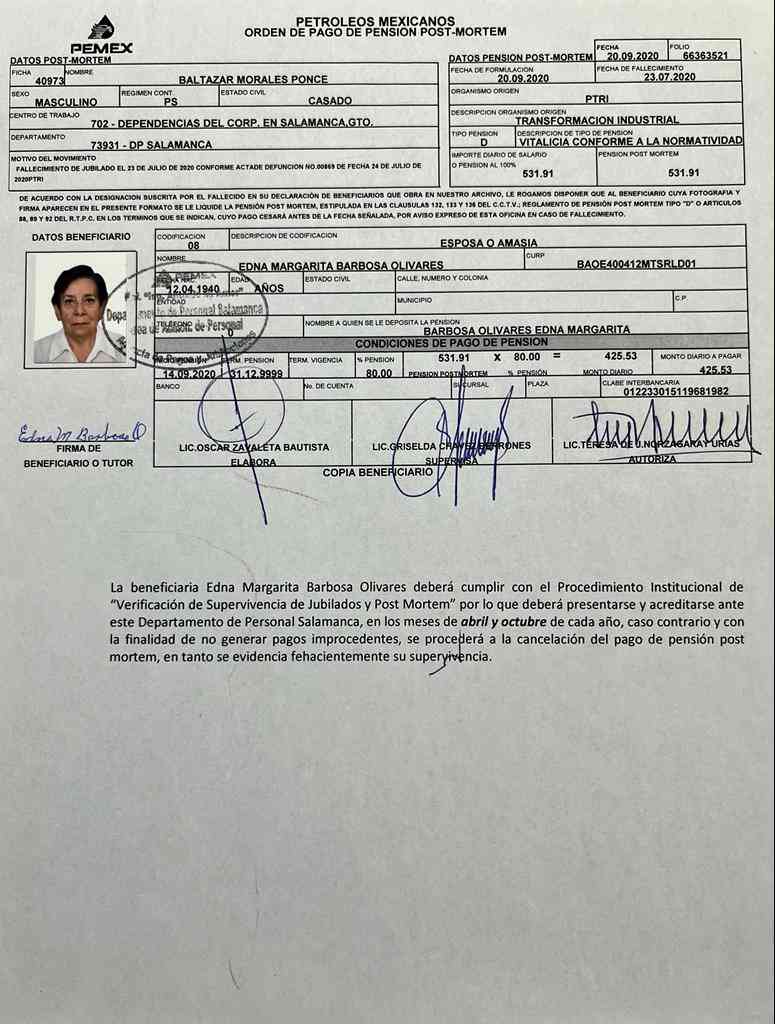 PETROLEOS MEXICANOS
ORDEN DE PAGO DE PENSION POST-MORTEM
PEMEX
DATOS POST-MORTEM
FICHA 40973 NOMBRE BALTAZAR MORALES PONCE
SEXO MASCULINO REGIMEN CONT. PS ESTADO CIVIL CASADO
CENTRO DE TRABAJO
702 - DEPENDENCIAS DEL CORP. EN SALAMANCA,GTO.
DEPARTAMENTO
73931 - DP SALAMANCA
MOTIVO DEL MOVIMIENTO
FALLECIMIENTO DE JUBILADO EL 23 DE JULIO DE 2020 CONFORME ACTADE DEFUNCION NO.00869 DE FECHA 24 DE JULIO DE
2020PTRI
DATOS PENSION POST-MORTEM
FECHA 20.09.2020 FOLIO 66363521
FECHA DE FORMULACION 20.09.2020 FECHA DE FALLECIMIENTO 23.07.2020
ORGANISMO ORIGEN
PTRI
DESCRIPCION ORGANISMO ORIGEN
TRANSFORMACION INDUSTRIAL
TIPO PENSION D DESCRIPCION DE TIPO DE PENSION VITALICIA CONFORME A LA NORMATIVIDAD
IMPORTE DIARIO DE SALARIO O PENSION AL 100% 531.91 PENSION POST MORTEM 531.91
DE ACUERDO CON LA DESIGNACION SUSCRITA POR EL FALLECIDO EN SU DECLARACIÓN DE BENEFICIARIOS QUE OBRA EN NUESTRO ARCHIVO, LE ROGAMOS DISPONER QUE AL BENEFICIARIO CUYA FOTOGRAFIA Y
FIRMA APARECEN EN EL PRESENTE FORMATO SE LE LIQUIDE LA PENSIÓN POST MORTEM, ESTIPULADA EN LAS CLAUSULAS 132, 133 Y 136 DEL C.C.T.V.; REGLAMENTO DE PENSION POST MORTEM TIPO "D" O ARTICULOS
88, 89 Y 92 DEL R.T.P.C. EN LOS TERMINOS QUE SE INDICAN, CUYO PAGO CESARÁ ANTES DE LA FECHA SEÑALADA, POR AVISO EXPRESO DE ESTA OFICINA EN CASO DE FALLECIMIENTO.
DATOS BENEFICIARIO
CODIFICACION 08 DESCRIPCION DE CODIFICACION ESPOSA O AMASIA
NOMBRE EDNA MARGARITA BARBOSA OLIVARES CURP BAOE400412MTSRLD01
12.04.1940 EDAD AÑOS ESTADO CIVIL CALLE, NUMERO Y COLONIA
ENTIDAD MUNICIPIO C.P.
TELEFONO 0 NOMBRE A QUIEN SE LE DEPOSITA LA PENSION BARBOSA OLIVARES EDNA MARGARITA
PEMEX
de Personal Salamanca
de Personal
CONDICIONES DE PAGO DE PENSION
14.09.2020 TERM. PENSION 31.12.9999 TERM. VIGENCIA % PENSIÓN 80.00 531.91 X 80.00 = 425.53 MONTO DIARIO A PAGAR 425.53
PENSION POSTMORTEM % PENSIÓN MONTO DIARIO
BANCO No. DE CUENTA SUCURSAL PLAZA CLABE INTERBANCARIA 012233015119681982
Edna M Barbosa O
FIRMA DE
BENEFICIARIO O TUTOR
LIC.OSCAR ZAVALETA BAUTISTA
ELABORA
LIC.GRISELDA
SUPERVISA
LIC.TERESA DE J.NORZAGARAY URIAS
AUTORIZA
COPIA BENEFICIARIO
La beneficiaria Edna Margarita Barbosa Olivares deberá cumplir con el Procedimiento Institucional de
"Verificación de Supervivencia de Jubilados y Post Mortem" por lo que deberá presentarse y acreditarse ante
este Departamento de Personal Salamanca, en los meses de abril y octubre de cada año, caso contrario y con
la finalidad de no generar pagos improcedentes, se procederá a la cancelación del pago de pensión post
mortem, en tanto se evidencia fehacientemente su supervivencia.